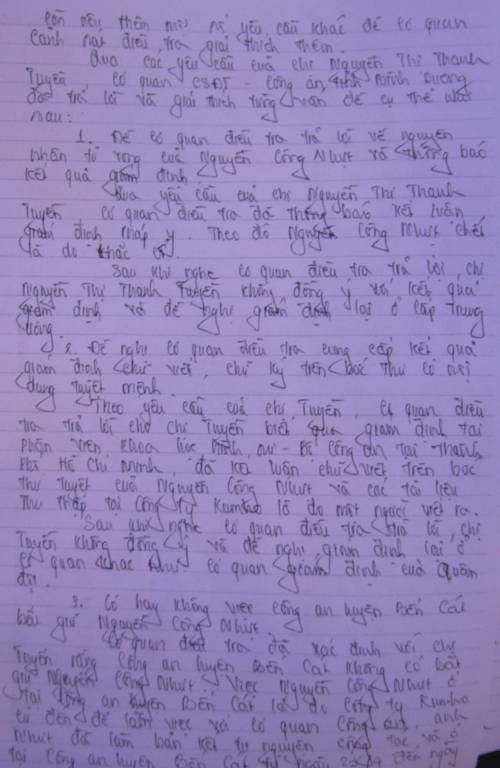 còn nêu thêm một số yêu cầu khác để cơ quan
cảnh sát điều tra giải thích thêm.
Qua các yêu cầu của chị Nguyễn Thị Thanh
Tuyền cơ quan CSĐT - công an tỉnh Bình Dương
đã trả lời và giải thích từng vấn đề cụ thể như
sau:
1. Đề cơ quan điều tra trả lời về nguyên
nhân tử vong của Nguyễn Công Nhựt và thông báo
kết quả giám định.
Qua yêu cầu của chị Nguyễn Thị Thanh
Tuyền cơ quan điều tra đã thông báo kết luận
giám định pháp y. Theo đó Nguyễn Công Nhựt chết
là do thắc cổ.
Sau khi nghe cơ quan điều tra trả lời, chị
Nguyễn Thị Thanh Tuyền không đồng ý với kết quả
giám định và đề nghị giám định lại ở cấp trung
ương.
2. Đề nghị cơ quan điều tra cung cấp kết quả
giám định chữ viết, chữ ký trên bức thư có nội
dung tuyệt mệnh.
Theo yêu cầu của chị Tuyền, cơ quan điều
tra trả lời cho chị Tuyền biết qua giám định tại
Phân viện khoa học hình sự - Bộ công an tại Thành
Phố Hồ Chí Minh, đã kết luận chữ viết trên bức
thư tuyệt của Nguyễn Công Nhựt và các tài liệu
thu thập tại công ty Kumho là do một người viết ra.
Sau khi nghe cơ quan điều tra trả lời, chị
Tuyền không đồng ý và đề nghị giám định lại ở
cơ quan khác như cơ quan giám định của Quân
đội.
3. Có hay không việc công an huyện Bến Cát
bắt giữ Nguyễn Công Nhựt
Cơ quan điều tra đã xác định với chị
Tuyền rằng công an huyện Bến Cát không có bắt
giữ Nguyễn Công Nhựt. Việc Nguyễn Công Nhựt ở
tại công an huyện Bến Cát là do công ty Kumho
cử đến để làm việc với cơ quan công an, anh
Nhựt đã làm bản kết tự nguyện cộng tác và ở
tại công an huyện Bến Cát từ ngày đến ngày